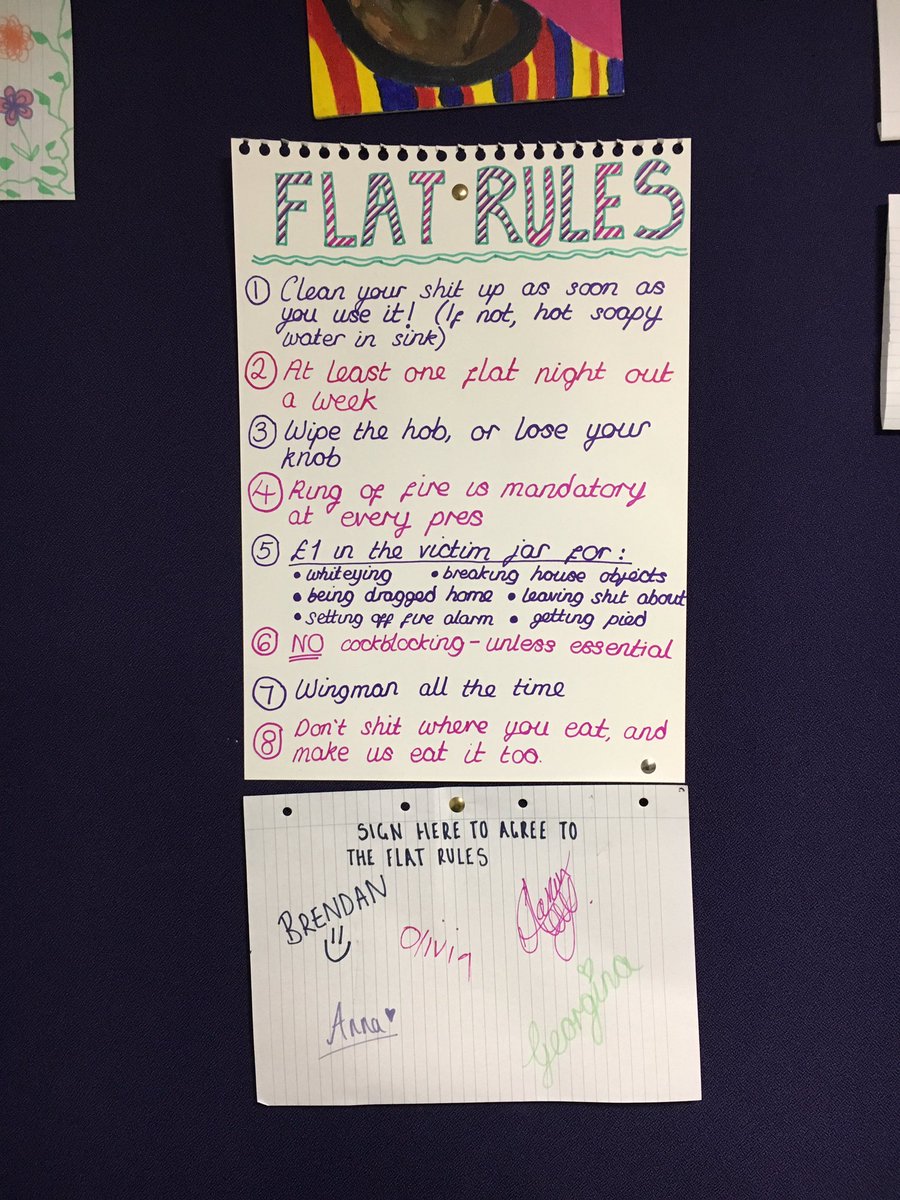 FLAT RULES
① Clean your shit up as soon as
you use it! (If not, hot soapy
water in sink)
② At least one flat night out
a week
③ Wipe the hob, or lose your
knob
④ Ring of fire is mandatory
at every pres
⑤ £1 in the victim jar for:
• whiteying • breaking house objects
• being dragged home • leaving shit about
• setting off fire alarm • getting pied
⑥ NO cockblocking - unless essential
⑦ Wingman all the time
⑧ Don't shit where you eat, and
make us eat it too.
SIGN HERE TO AGREE TO
THE FLAT RULES
BRENDAN
Olivia
Georgina
Anna